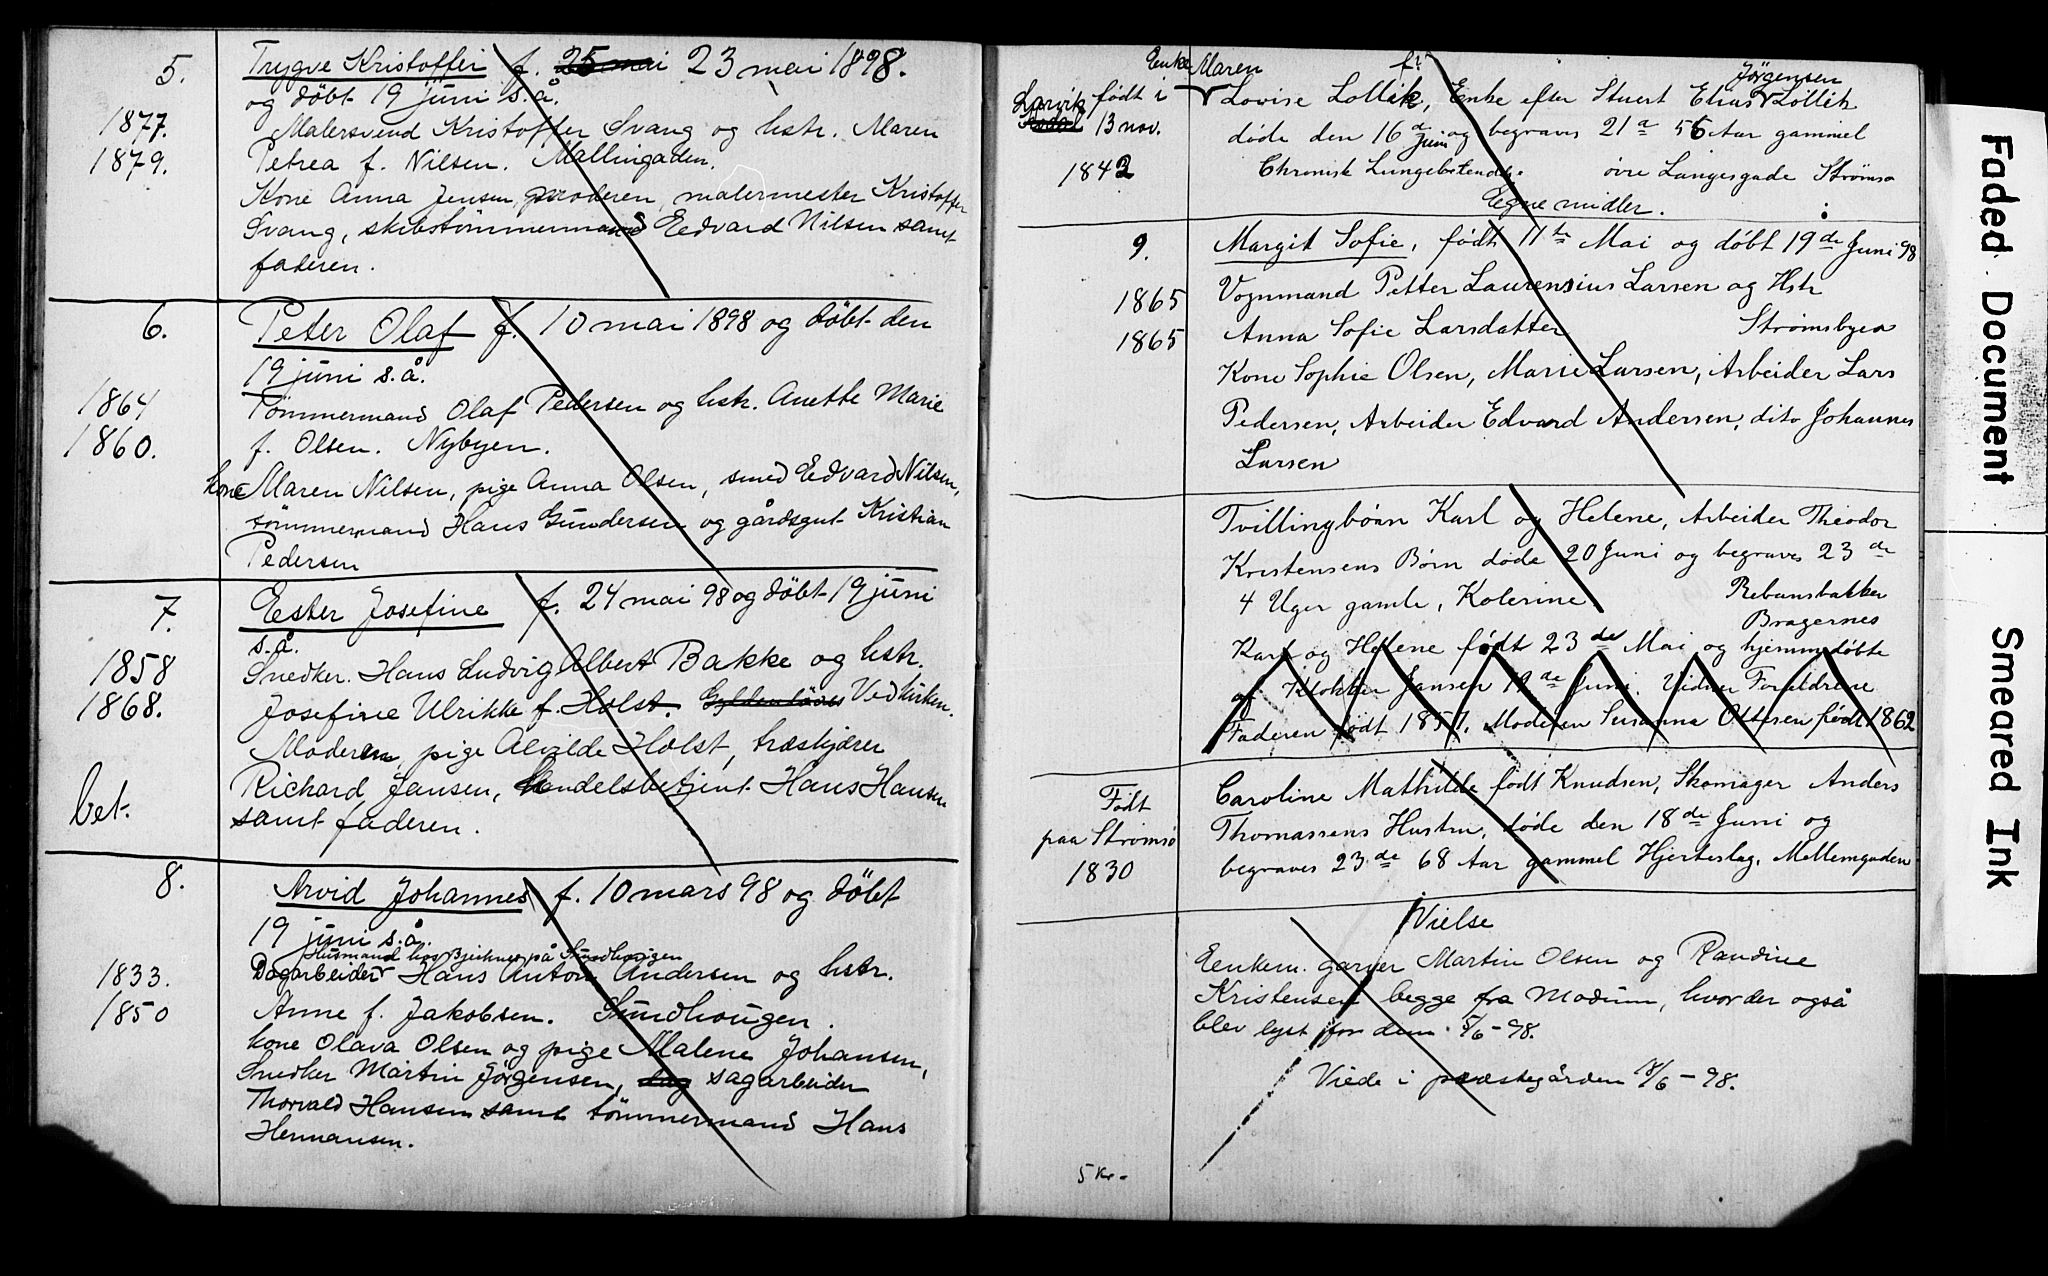 5. Trygve Kristoffer f. 25 mai 23 mai 1898.
og döbt 19 juni s.å.
1877. Malersvend Kristoffer Svang og hstr. Maren
1879. Petrea f. Nilsen. Mallingaden.
Kone Anna Jensen, moderen, malermester Kristoffer
Svang, skibstömmermand Edvard Nilsen samt
faderen.
6. Peter Olaf f. 10 mai 1898 og döbt den
19 juni s.å.
1864 Tömmermand Olaf Pedersen og hstr. Anette Marie
1860. f. Olsen. Nybyen.
kone Maren Nilsen, pige Anna Olsen, smed Edvard Nilsen,
tömmermand Hans Gundersen og gårdsgut Kristian
Pedersen
7. Ester Josefine f. 24 mai 98 og döbt 19 juni
s.å.
1858 Snedker Hans Ludvig Albert Bakke og hstr.
1868. Josefine Ulrikke f. Holst. Gyldenlöves Ved kirken.
Moderen, pige Alvilde Holst, træskjærer
bet. Richard Jansen, Handelsbetjent Hans Hansen
samt faderen.
8. Arvid Johannes f. 10 mars 98 og döbt
19 juni s.å.
Husmand hos på Sundhougen
1833. Dagarbeider Hans Anton Andersen og hstr.
1850 Anne f. Jakobsen. Sundhougen.
kone Olava Olsen og pige Malene Johansen,
Snedker Martin Jörgensen, sag sagarbeider
Thorvald Hansen samt tömmermand Hans
Hermansen.
Enke Maren f. Jörgensen
Larvik født i Lovise Lollik, Enke efter Stuert Elias Lollik
13 nov. døde den 16 de Juni og begraves 21 a 55 Aar gammel
1843 Chronisk Lungebetendse. övre Langesgade Strømsø
Egne midler.
9. Margit Sofie, født 11te Mai og døbt 19de Juni 98
1865 Vognmand Petter Laurensius Larsen og Hstr
1865 Anna Sofie Larsdatter Strømsbyen
Kone Sophie Olsen, Marie Larsen, Arbeider Lars
Pedersen, Arbeider Edvard Andersen, dito Johannes
Larsen
Tvillingbørn Karl og Helene, Arbeider Theodor
Kristensens Børn døde 20 Juni og begraves 23 de
4 Uger gamle, Kolerine. Rebansbakken
Bragernes
Karl og Helene født 23 de Mai og hjemmedøbte
af Klokker Jansen 19 de Juni. Vidner Foraldrene
Faderen født 1857. Moderen Susanna Ottesen født 1862
Født Caroline Mathilde født Knudsen, Skomager Anders
paa Strømsø Thomassens Hustru, døde den 18 de Juni og
1830 begraves 23 de 68 Aar gammel Hjerteslag. Mellemgaden
Vielse
Enkem. garver Martin Olsen og Randine
Kristensen begge fra Modum, hvor der også
blev lyst for dem 5/6-98.
Viede i præstegården 18/6-98.
5 Kr.
Faded Document
Smeared Ink